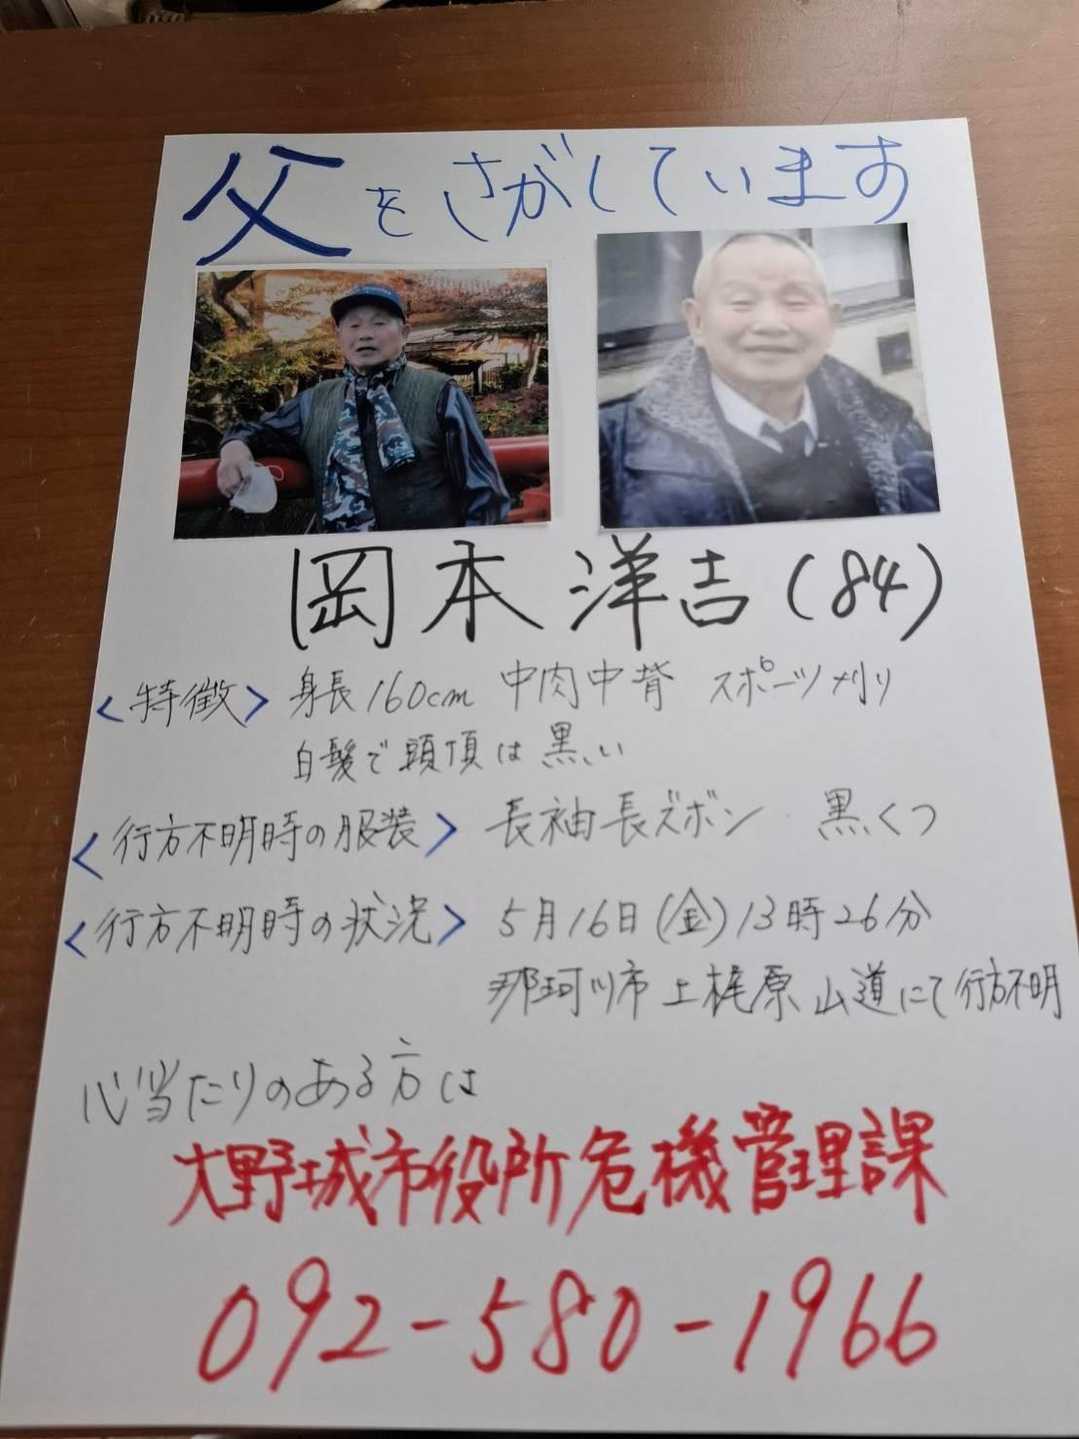 父をさがしています
岡本洋吉(84)
<特徴> 身長160cm 中肉中背 スポーツ刈り
白髪で頭頂は黒い
<行方不明時の服装> 長袖長ズボン 黒くつ
<行方不明時の状況> 5月16日(金)13時26分
那珂川市上梶原山道にて行方不明
心当たりのある方は
大野城市役所危機管理課
092-580-1966